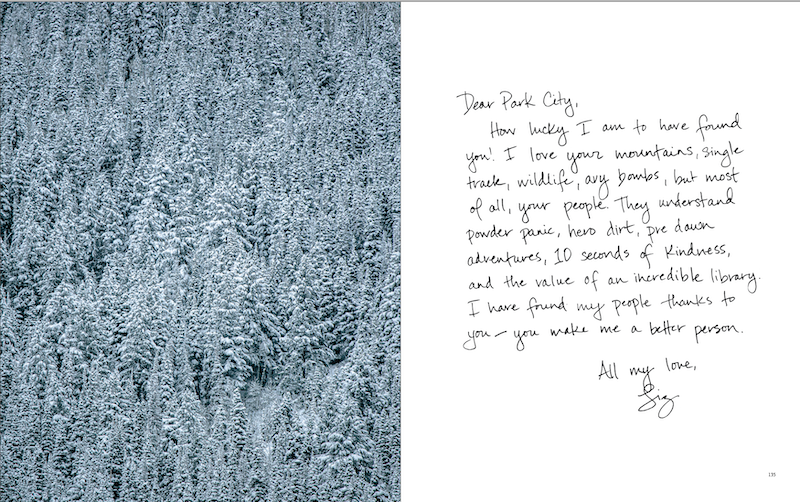 Dear Park City,
How lucky I am to have found
you! I love your mountains, single
track, wildlife, avy bombs, but most
of all, your people. They understand
powder panic, hero dirt, pre dawn
adventures, 10 seconds of kindness,
and the value of an incredible library.
I have found my people thanks to
you - you make me a better person.
All my love,
Liz
135